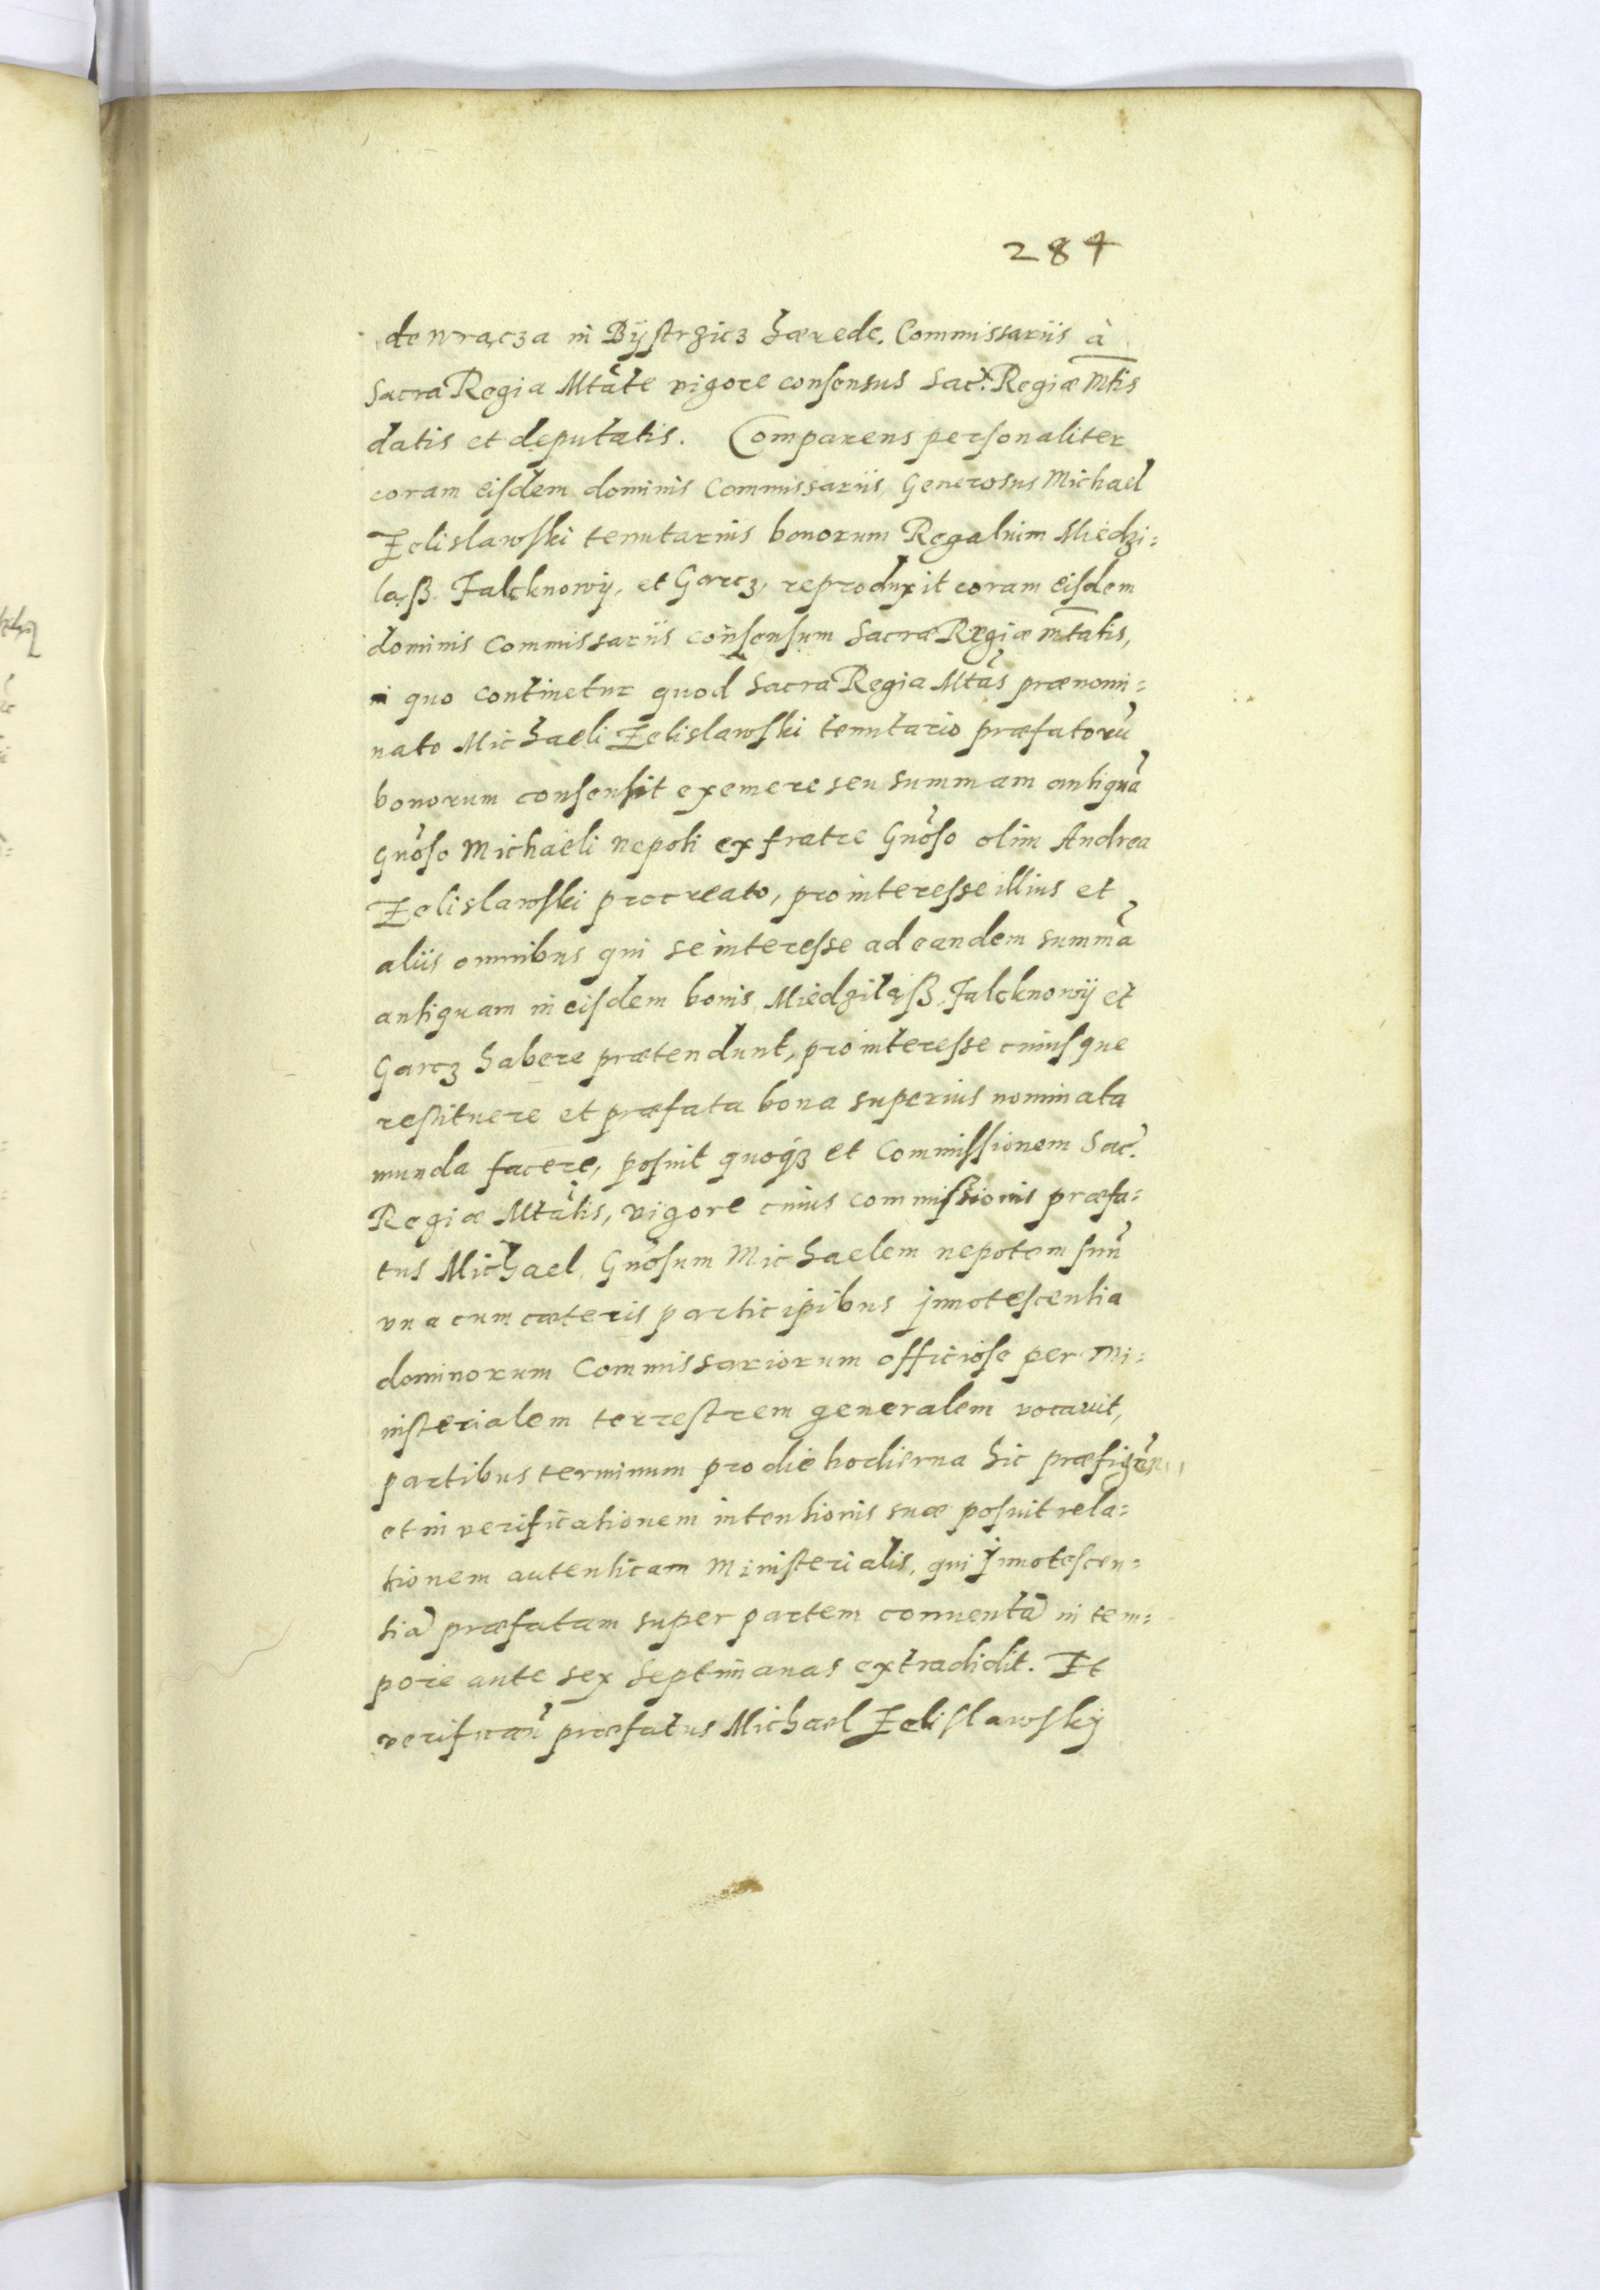 284
de Wrącza in Bÿstrzicz hærede, Commissariis à
Sacra Regia Mtãte vigore consensus Sacr. Regiæ Mtis
datis et deputatis. Comparens personaliter
coram eisdem dominis Commissariis, Generosus Michael
Zelislawski tenutarius bonorum Regalium Miedzi=
laß, Falcknowÿ, et Garcz, reproduxit coram eisdem
dominis Commissariis consensum Sacræ Regiæ Mtatis,
quo continetur quod Sacra Regia Mtãs prænomi=
nato Michaeli Zelislawski tenutario præfatorũ
bonorum consensit exemere seu summam antiquã
Gnõso Michaeli nepoti ex fratre Gnõso olim Andrea
Zelislawski procreato, pro interesse illius et
aliis omnibus qui se interesse ad eandem summã
antiquam in eisdem bonis Miedziląß, Falcknowÿ et
Garcz habere prætendunt, pro interesse cuiusque
restituere et præfata bona superius nominata
munda facere, posuit quoqз et Commissionem Sac.
Regiæ Mtãtis, vigore cuius commissionis præfa=
tus Michael, Gnõsum Michaelem nepotem suũ
vna cum cæteris participibus innotescentia
dominorum Commissariorum officiose per Mi=
nisterialem terrestrem generalem vocavit,
partibus terminum pro die hodierna hic præfigẽn,
et in verificationem intentionis suæ posuit rela=
tionem autenticam Ministerialis, qui Innotescen=
tiã præfatam super partem conuentã in tem=
pore ante sex septimanas extradidit. Et
verificañ præfatus Michael Zelislawskÿ